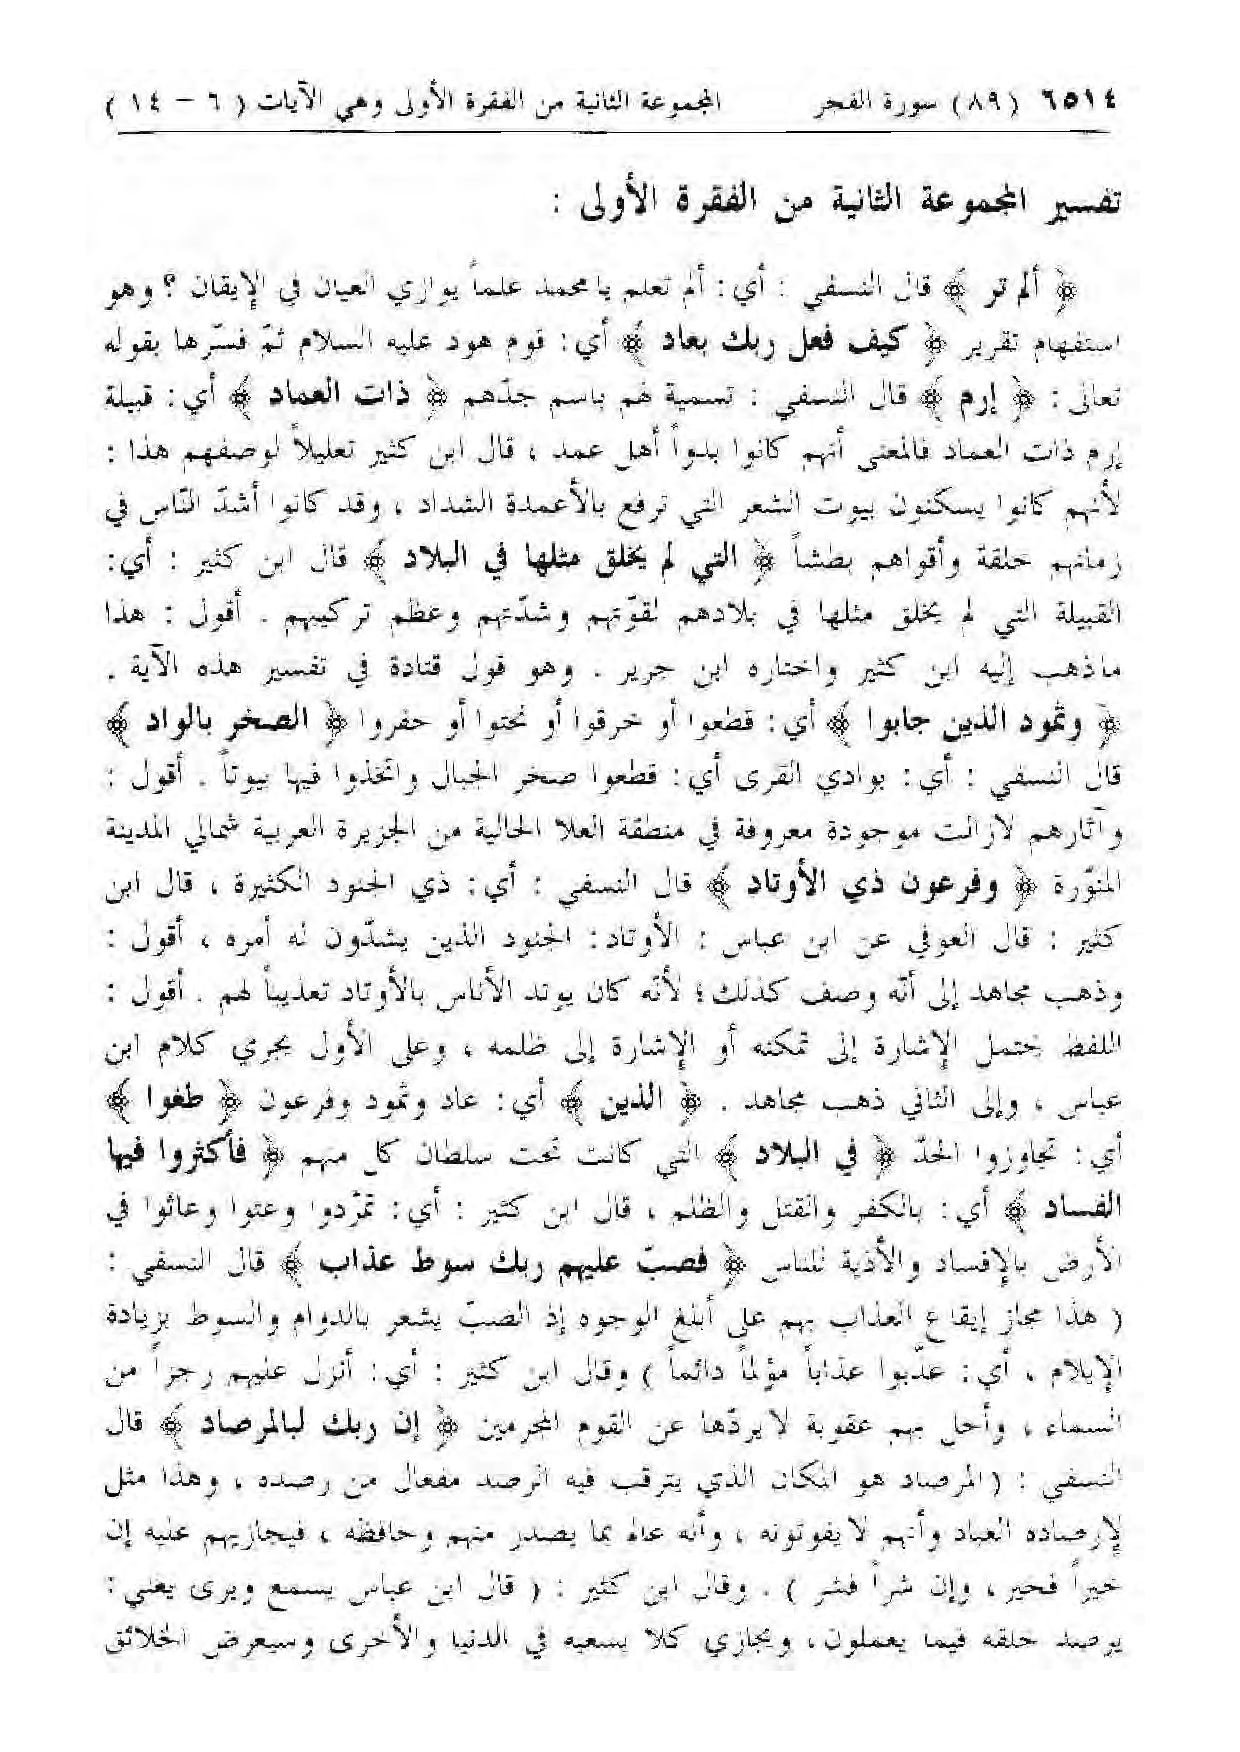 ٦٥١٤ (٨٩) سورة الفجر المجموعة الثانية من الفقرة الأولى وهي الآيات ( ٦ – ١٤ )
تفسير المجموعة الثانية من الفقرة الأولى :
﴿ ألم تر ﴾ قال النسفي : أي : ألم تعلم يا محمد علماً يوازي العيان في الإيقان ؟ وهو
استفهام تقرير ﴿ كيف فعل ربك بعاد ﴾ أي : قوم هود عليه السلام ثمّ فسّرها بقوله
تعالى : ﴿ إرم ﴾ قال النسفي : تسمية لهم باسم جدّهم ﴿ ذات العماد ﴾ أي : قبيلة
إرم ذات العماد فالمعنى أنهم كانوا بدواً أهل عمد ، قال ابن كثير تعليلاً لوصفهم هذا :
لأنهم كانوا يسكنون بيوت الشعر التي ترفع بالأعمدة الشداد ، وقد كانوا أشدّ النّاس في
زمانهم خلقة وأقواهم بطشاً ﴿ التي لم يخلق مثلها في البلاد ﴾ قال ابن كثير : أي :
القبيلة التي لم يخلق مثلها في بلادهم لقوّتهم وشدّتهم وعظم تركيبهم . أقول : هذا
ماذهب إليه ابن كثير واختاره ابن جرير . وهو قول قتادة في تفسير هذه الآية .
﴿ وثمود الذين جابوا ﴾ أي : قطعوا أو خرقوا أو نحتوا أو حفروا ﴿ الصخر بالواد ﴾
قال النسفي : أي : بوادي القرى أي : قطعوا صخر الجبال واتخذوا فيها بيوتاً . أقول :
وآثارهم لازالت موجودة معروفة في منطقة العلا الحالية من الجزيرة العربية شمالي المدينة
المنوّرة ﴿ وفرعون ذي الأوتاد ﴾ قال النسفي : أي : ذي الجنود الكثيرة ، قال ابن
كثير : قال العوفي عن ابن عباس : الأوتاد : الجنود الذين يشدّون له أمره ، أقول :
وذهب مجاهد إلى أنّه وصف كذلك ؛ لأنّه كان يوتد الأناس بالأوتاد تعذيباً لهم . أقول :
اللفظ يحتمل الإشارة إلى تمكنه أو الإشارة إلى ظلمه ، وعلى الأول يجري كلام ابن
عباس ، وإلى الثاني ذهب مجاهد . ﴿ الذين ﴾ أي : عاد وثمود وفرعون ﴿ طغوا ﴾
أي : تجاوزوا الحدّ ﴿ في البلاد ﴾ التي كانت تحت سلطان كل منهم ﴿ فأكثروا فيها
الفساد ﴾ أي : بالكفر والقتل والظلم ، قال ابن كثير : أي : تمرّدوا وعتوا وعاثوا في
الأرض بالإفساد والأذية للناس ﴿ فصبّ عليهم ربك سوط عذاب ﴾ قال النسفي :
( هذا مجاز إيقاع العذاب بهم على أبلغ الوجوه إذ الصبّ يشعر بالدوام والسوط بزيادة
الإيلام ، أي : عذّبوا عذاباً مؤلماً دائماً ) وقال ابن كثير : أي : أنزل عليهم رجزاً من
السماء ، وأحل بهم عقوبة لا يردّها عن القوم المجرمين ﴿ إن ربك لبالمرصاد ﴾ قال
النسفي : ( المرصاد هو المكان الذي يترقب فيه الرصد مفعال من رصده ، وهذا مثل
لإرصاده العباد وأنهم لا يفوتونه ، وأنه عالم بما يصدر منهم وحافظه ، فيجازيهم عليه إن
خيراً فخير ، وإن شراً فشر ) . وقال ابن كثير : ( قال ابن عباس يسمع ويرى يعني :
يرصد خلقه فيما يعملون ، ويجازي كلا بسعيه في الدنيا والأخرى وسيعرض الخلائق